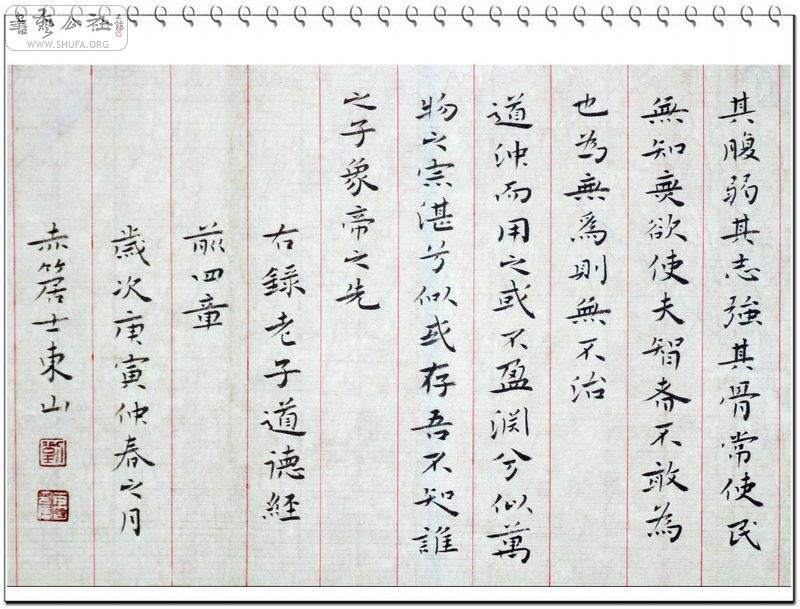 書藝公社
WWW.SHUFA.ORG
其腹弱其志強其骨常使民
無知無欲使夫智者不敢為
也為無為則無不治
道沖而用之或不盈渊兮似萬
物之宗湛兮似或存吾不知誰
之子象帝之先
右錄老子道德經
前四章
歲次庚寅仲春之月
赤篱居士東山
劉